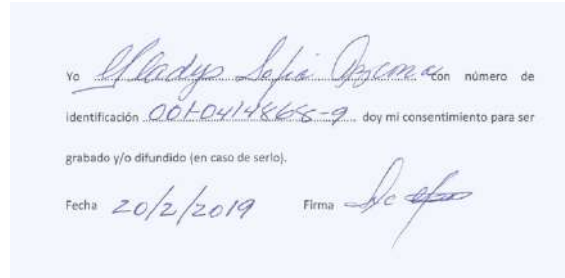 Yo Gladys Sofia Ozuna con número de
identificación 001-0414868-9 doy mi consentimiento para ser
grabado y/o difundido (en caso de serlo).
Fecha 20/2/2019 Firma